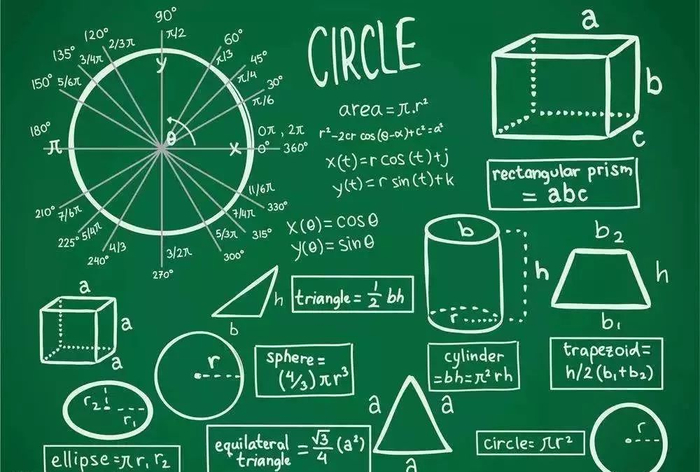 90°
π/2
120°
2/3π
60°
π/3
135°
3/4π
45°
π/4
150° 5/6π
30°
π/6
y
θ
180°
π
x
0π, 2π
0° 360°
11/6π
330°
210° 7/6π
7/4π
315°
225° 5/4π
5/3π
300°
240° 4/3
3/2π
270°
CIRCLE
area = π.r²
r²-2cr cos(θ-α)+c²=a²
x(t)=r cos(t)+j
y(t)=r sin(t)+k
x(θ)=cosθ
y(θ)=sinθ
a
b
c
rectangular prism
= abc
a
a
a
h
b
triangle = 1/2 bh
b
h
r
cylinder
=bh=π²rh
b₂
h
b₁
trapezoid=
h/2(b₁+b₂)
r
sphere =
(4/3)πr³
r₂
r₁
ellipse=π r₁ r₂
equilateral
triangle = √3/4 (a²)
a
a
a
circle= πr²
r